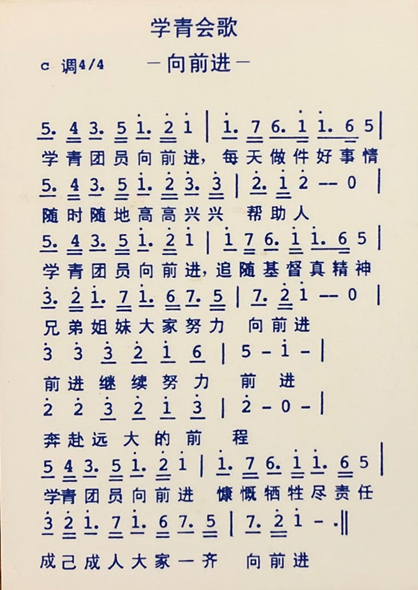 学青会歌
c 调4/4 －向前进－
5. 4 3. 5 1̇. 2̇ 1̇ | 1̇. 7 6. 1̇ 1̇. 6 5 |
学青团员向前进，每天做件好事情
5. 4 3. 5 1̇. 2̇ 3̇. 3̇ | 2̇. 1̇ 2̇ -- 0 |
随时随地高高兴兴 帮助人
5. 4 3. 5 1̇. 2̇ 1̇ | 1̇ 7 6. 1̇ 1̇. 6 5 |
学青团员向前进，追随基督真精神
3̇. 2̇ 1̇. 7 1̇. 6 7. 5 | 7. 2̇ 1̇ -- 0 |
兄弟姐妹大家努力 向前进
3̇ 3̇ 3̇ 2̇ 1̇ 6 | 5 - 1̇ - |
前进继续努力 前进
2̇ 2̇ 3̇ 2̇ 1̇ 3̇ | 2̇ - 0 - |
奔赴远大的前程
5 4 3. 5 1̇. 2̇ 1̇ | 1̇. 7 6. 1̇ 1̇. 6 5 |
学青团员向前进 慷慨牺牲尽责任
3̇ 2̇ 1̇. 7 1̇. 6 7. 5 | 7. 2̇ 1̇ - . ‖
成己成人大家一齐 向前进